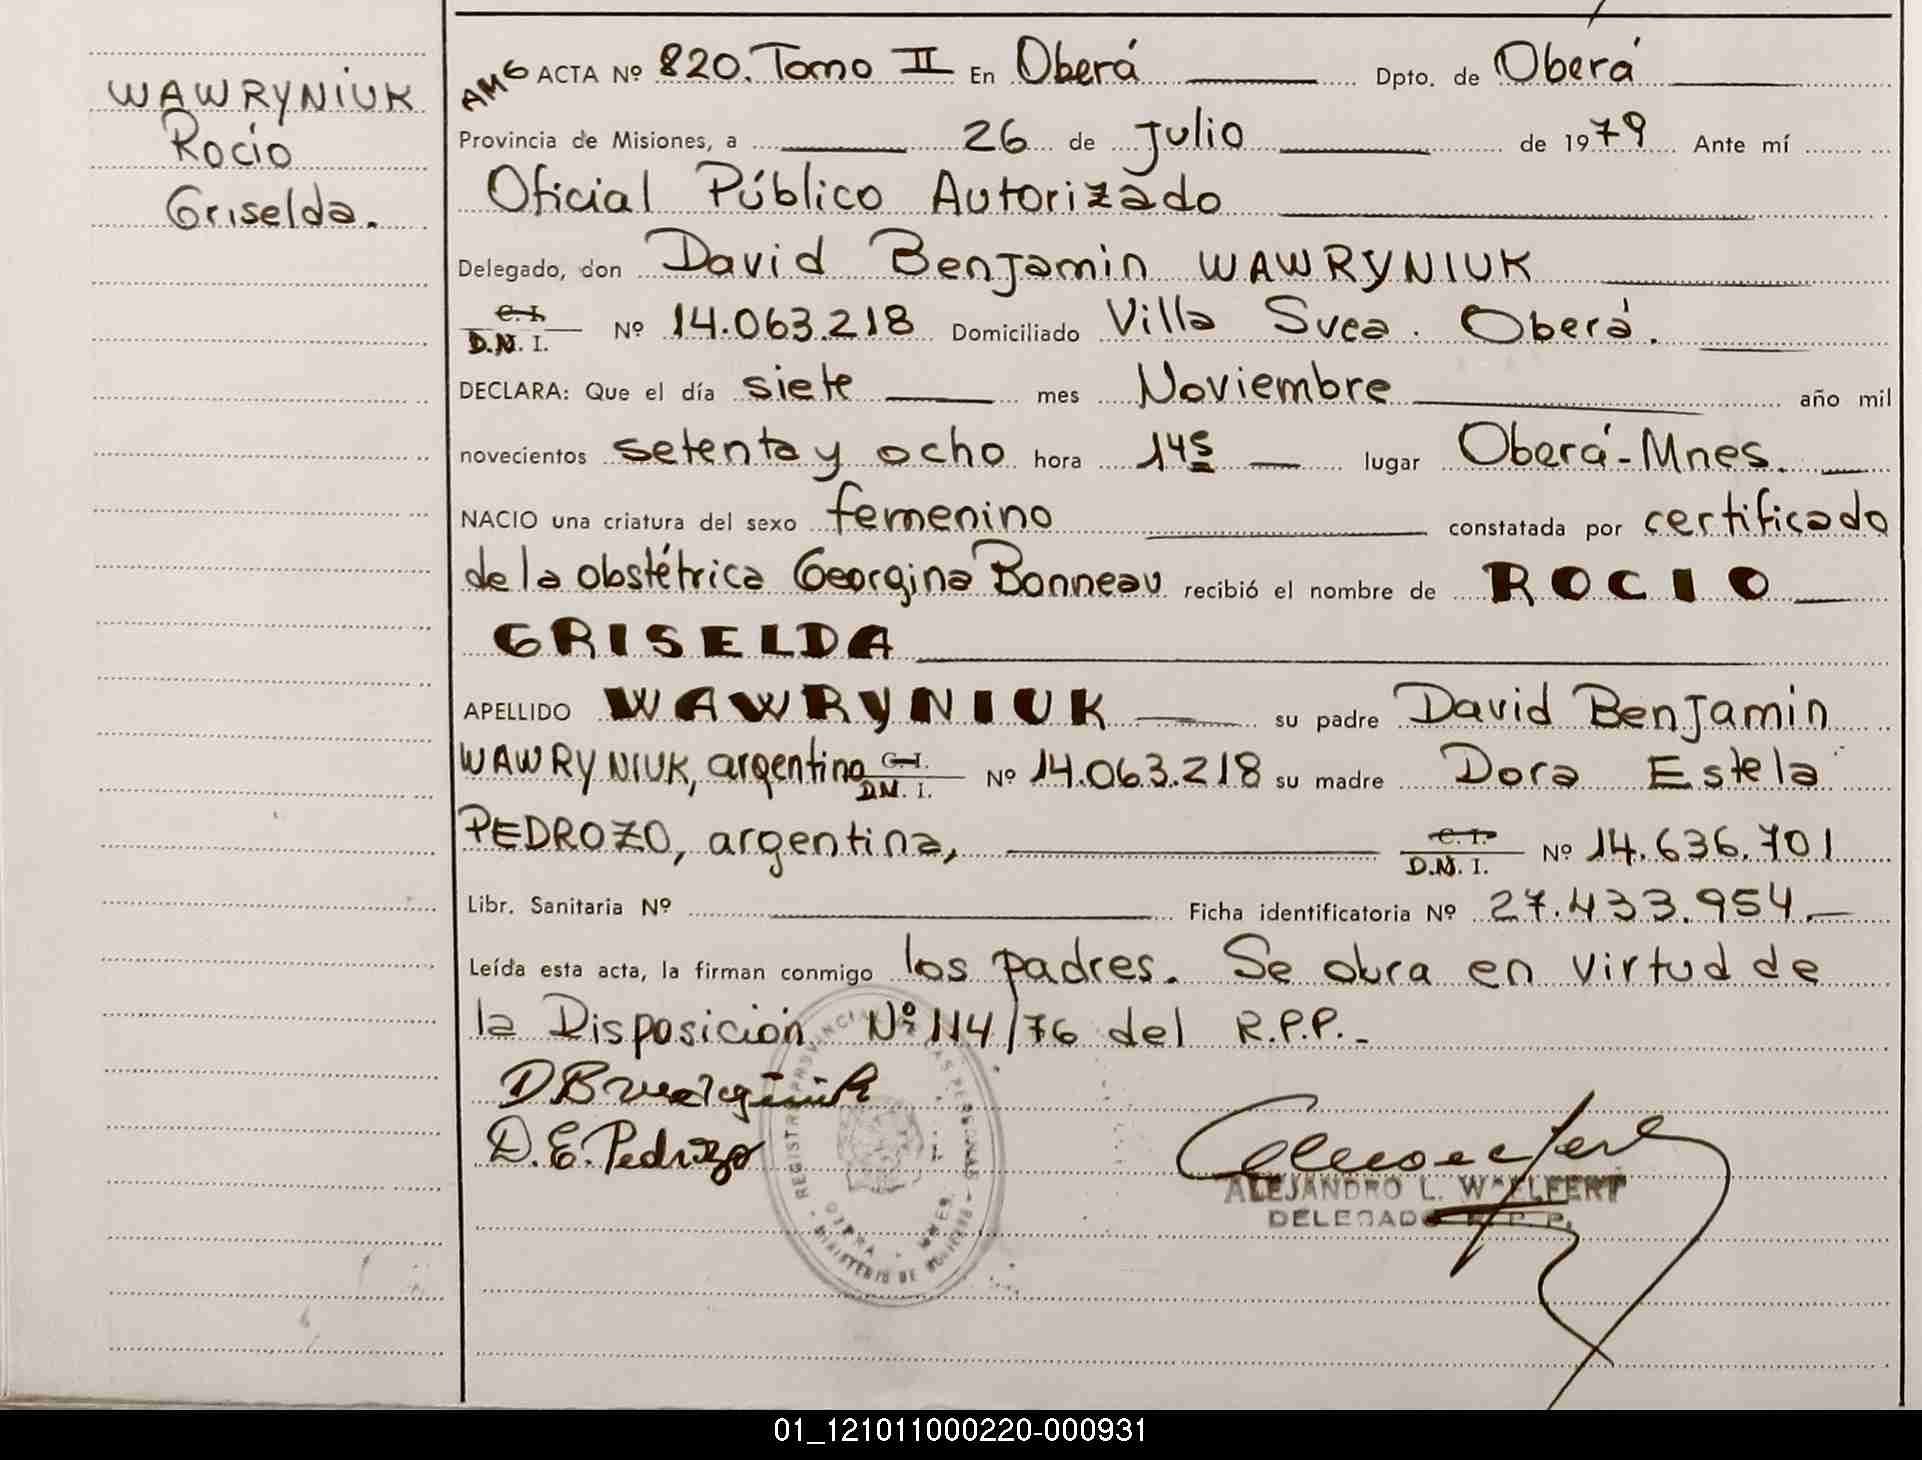 WAWRYNIUK
Rocio
Griselda.
AM6 ACTA Nº 820. Tomo II En Oberá Dpto. de Oberá
Provincia de Misiones, a 26 de Julio de 1979 Ante mí
Oficial Público Autorizado
Delegado, don David Benjamin WAWRYNIUK
C. I. D.N.I. Nº 14.063.218 Domiciliado Villa Svea. Oberá.
DECLARA: Que el día siete mes Noviembre año mil
novecientos setenta y ocho hora 14 5 lugar Oberá-Mnes.
NACIO una criatura del sexo femenino constatada por certificado
de la obstétrica Georgina Bonneau recibió el nombre de ROCIO
GRISELDA
APELLIDO WAWRYNIUK su padre David Benjamin
WAWRYNIUK, argentino C. I. D.N.I. Nº 14.063.218 su madre Dora Estela
PEDROZO, argentina, C. I. D.N.I. Nº 14.636.701
Libr. Sanitaria Nº Ficha identificatoria Nº 27.433.954
Leída esta acta, la firman conmigo los padres. Se obra en virtud de
la Disposición Nº 114/76 del R.P.P.-
D. E. Pedrozo
REGISTRO PROVINCIAL DE LAS PERSONAS
OBERA - MNES.
MINISTERIO DE GOBIERNO
ALEJANDRO L. WAELFERT
DELEGADO R. P. P.
01_121011000220-000931